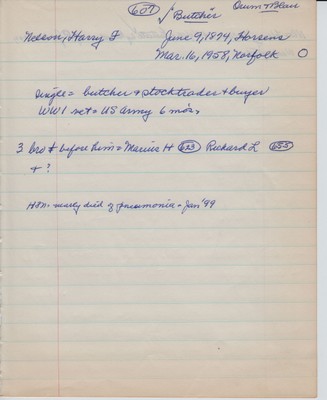 607 ✓ Butcher
Nelson, Harry F June 9, 1874, Horsens
Mar. 16, 1958, Norfolk O
single = butcher & stocktrader & buyer
WW1 vet = US army 6 mos.
3 bro † before him = Marius H 623 Richard L 655
+ ?
HFN = nearly died of pneumonia - Jan '99